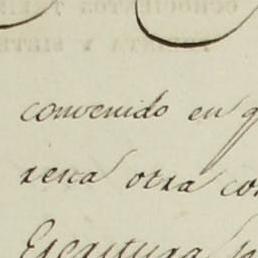 convenido en q
rena otra co
Escritura p